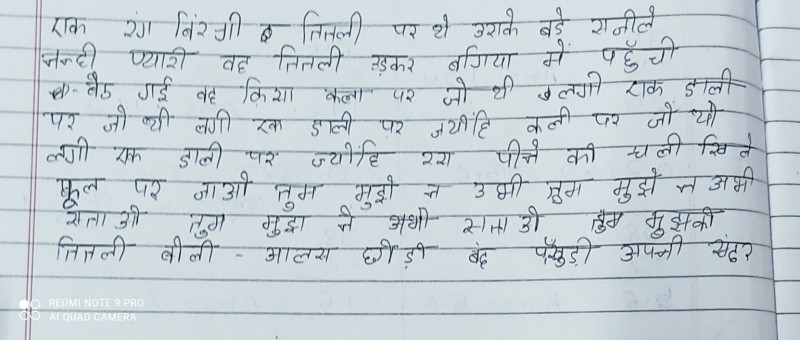 एक रंग बिरंगी तितली पर थे उसके बडे सजीले
नन्ही प्यारी वह तितली उड़कर बगिया में पहुँची
बैठ गई वह किसी कला पर जो थी लगी एक डाली
पर जो थी लगी एक डाली पर ज्योंहि कली पर जो थी
लगी एक डाली पर ज्योंहि रस पीने को चली खिले
फूल पर जाओ तुम मुझे न अभी तुम मुझे न अभी
सताओ तुम मुझे न अभी सताओ तुम मुझको
तितली बोली - आलस छोड़ो बंद पँखुड़ी अपनी सुंदर
REDMI NOTE 9 PRO
AI QUAD CAMERA